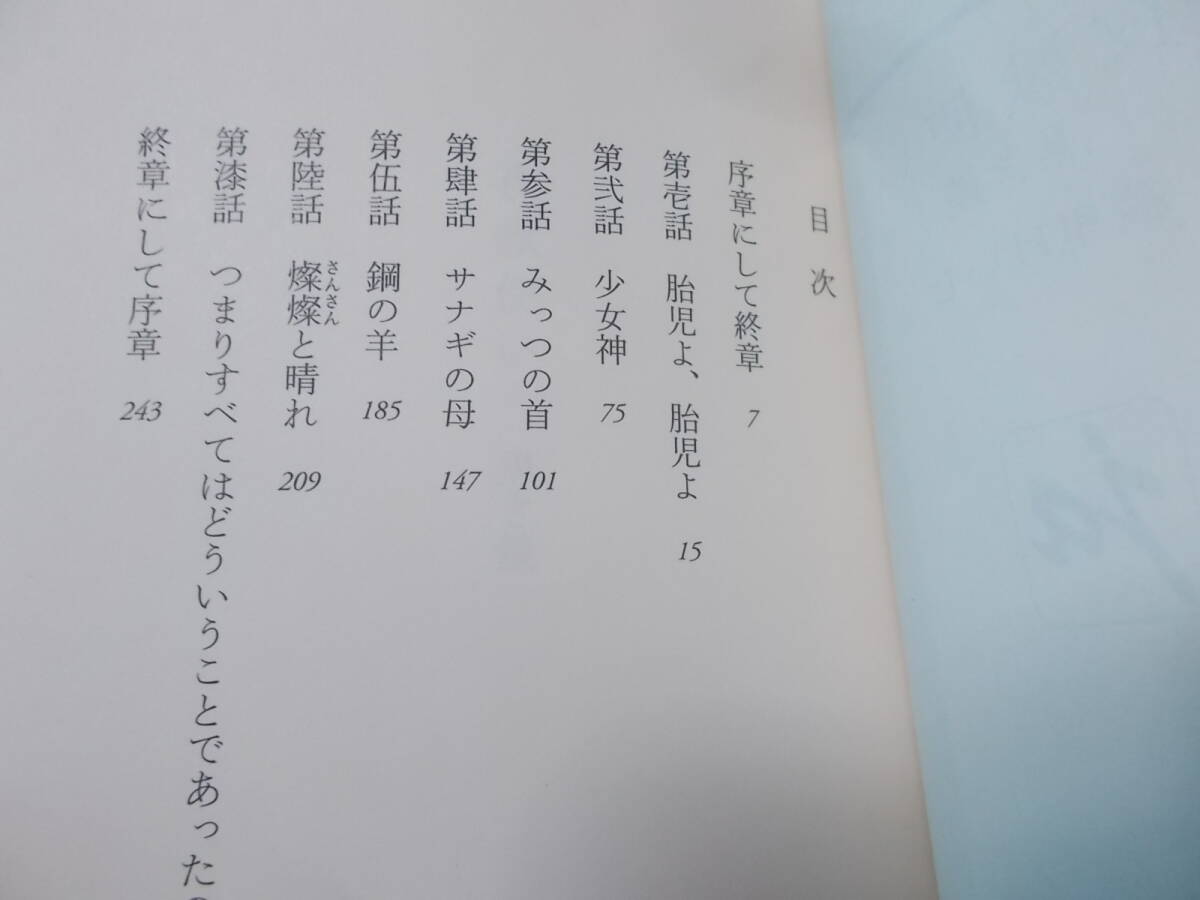 目次
序章にして終章 7
第壱話 胎児よ、胎児よ 15
第弐話 少女神 75
第参話 みっつの首 101
第肆話 サナギの母 147
第伍話 鋼の羊 185
第陸話 燦燦と晴れ 209
さんさん
第漆話 つまりすべてはどういうことであった
終章にして序章 243